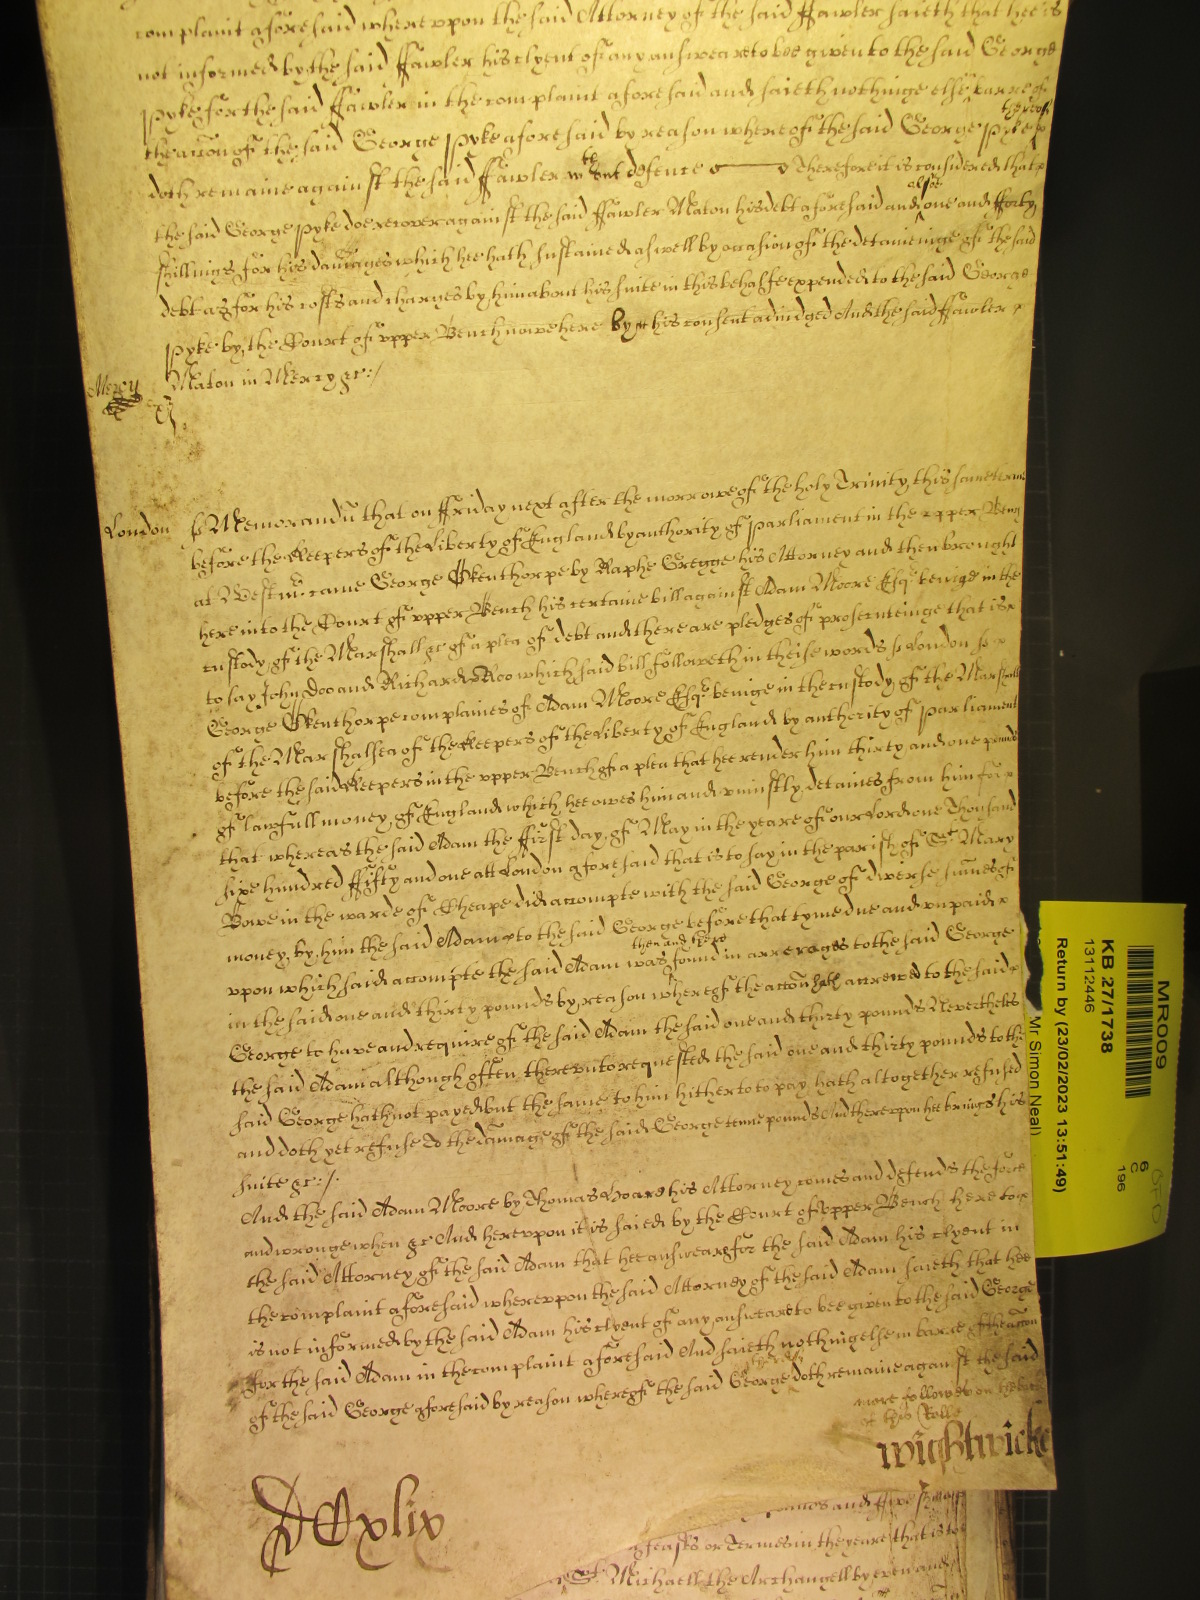 complaint aforesaid whereupon the said Attorney of the said ffawler saieth that hee is
not informed by the said ffawler his clyent of any answeare to bee given to the said George
Pyke for the said ffawler in the complaint aforesaid and saieth nothinge else in barre of
the accon of the said George Pyke aforesaid by reason whereof the said George Pyke
thereof
doth remaine against the said ffawler wthout defence Therefore it is considered that
the said George Pyke doe recover against the said ffawler Maton his debt aforesaid and alsoe one and fforty
shillings for his damages which hee hath sustained aswell by occasion of the detaieninge of the said
debt as for his costs and charges by him about his suite in this behalfe expended to the said George
Pyke by the Court of upper Bench nowe here by his consent adiudged And the said ffawler
Mercy Maton in Mercy &c:/
London ss Memorandu that on ffriday next after the morrowe of the holy Trinity this same terme
before the Keepers of the Liberty of England by authority of Parliament in the upper Bench
at Westmr came George Okenthorpe by Raphe Gregge his Attorney and then brought
here into the Court of upper Bench his certaine bill against Adam Moore Esqr beinge in the
custody of the Marshall &c of a plea of debt and there are pledges of prosecuteinge that is
to say John Doo and Richard Roo which said bill followeth in theise words ss London ss
George Okenthorpe complaines of Adam Moore Esqr beinge in the custody of the Marshall
of the Marshalsea of the Keepers of the Liberty of England by authority of Parliament
before the said Keepers in the upper Bench of a plea that hee render him thirty and one pounds
of lawfull money of England which hee owes him and uniustly detaines from him for
that whereas the said Adam the ffirst day of May in the yeare of our Lord one Thousand
sixe hundred ffifty and one att London aforesaid that is to say in the parish of St Mary
Bowe in the warde of Cheape did accompte with the said George of diverse sumes of
money by him the said Adam to the said George before that tyme due and unpaid
upon which said accompte the said Adam was then and there found in arrerages to the said George
in the said one and thirty pounds by reason whereof the accon hath accrewed to the said
George to have and require of the said Adam the said one and thirty pounds Neverthelesse
the said Adam although often thereunto requested the said one and thirty pounds to the
said George hath not payed but the same to him hitherto to pay hath altogether refused
and doth yet refuse To the damage of the said George tenne pounds And thereupon hee brings his
suite &c:/
And the said Adam Moore by Thomas Hoare his Attorney comes and defends the force
and wronge when &c And hereupon it is saied by the Court of upper Bench here to
the said Attorney of the said Adam that hee answeare for the said Adam his clyent in
the complaint aforesaid whereupon the said Attorney of the said Adam saieth that hee
is not informed by the said Adam his clyent of any answeare to bee given to the said George
for the said Adam in the complaint aforesaid And saieth nothing else in barre of the accon
of the said George aforesaid by reason whereof the said George doth remaine against the said
more followes on the
of this Rolle
wightwicke
DCxlix
and ffive
feasts or Termes in the yeare that is to
St Michaell the Archangell by even and
MR009
KB 27/1738
13112446
Return by (23/02/2023 13:51:49)
Mr Simon Neal)
6
C
196